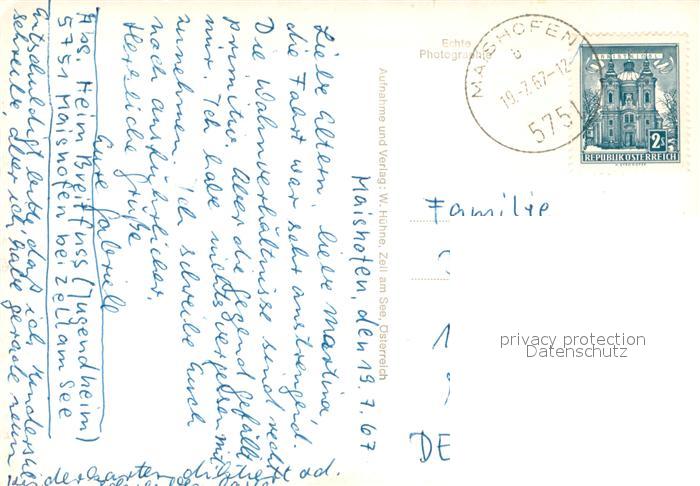 Maishofen, den 19.7.67
Liebe Eltern, liebe Martina,
die Fahrt war sehr anstrengend.
Die Wohnverhältnisse sind recht
primitiv. Aber die Gegend gefällt
mir. Ich habe nichts vergessen mit
zunehmen. Ich schreibe Euch
noch ausführlicher.
Herzliche Grüße
Eure Gabriele
Abs. Heim Breitfuss (Jugendheim)
5751 Maishofen bei Zell am See
Entschuldigt bitte, daß ich
schreibe, aber ich habe gerade neun
ad.
Aufnahme und Verlag: W. Hühne, Zell am See, Österreich
Echte
Photographie
MAISHOFEN
b
19.-7.67-12
5751
CHRISTKINDL
2s
REPUBLIK ÖSTERREICH
Familie
DE
privacy protection
Datenschutz